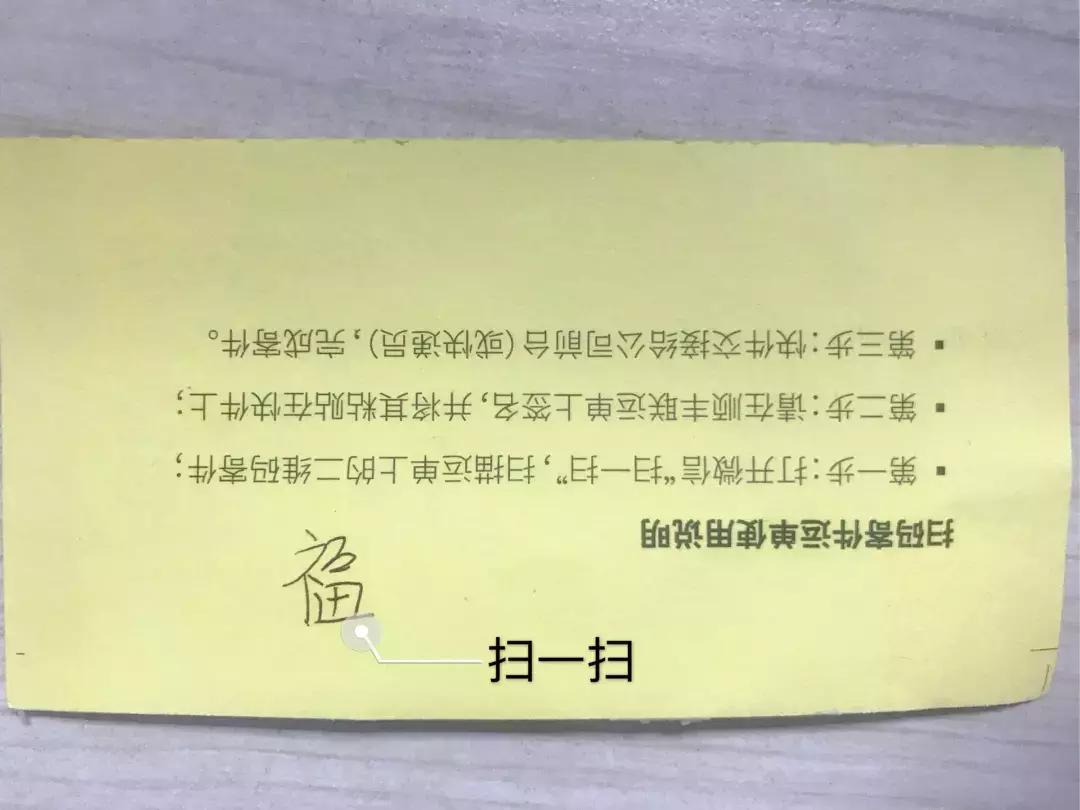 扫码寄件运单使用说明
▪ 第一步:打开微信“扫一扫”,扫描运单上的二维码寄件;
▪ 第二步:请在顺丰联运单上签名,并将其粘贴在快件上;
▪ 第三步:快件交接给公司前台(或快递员),完成寄件。
福
扫一扫